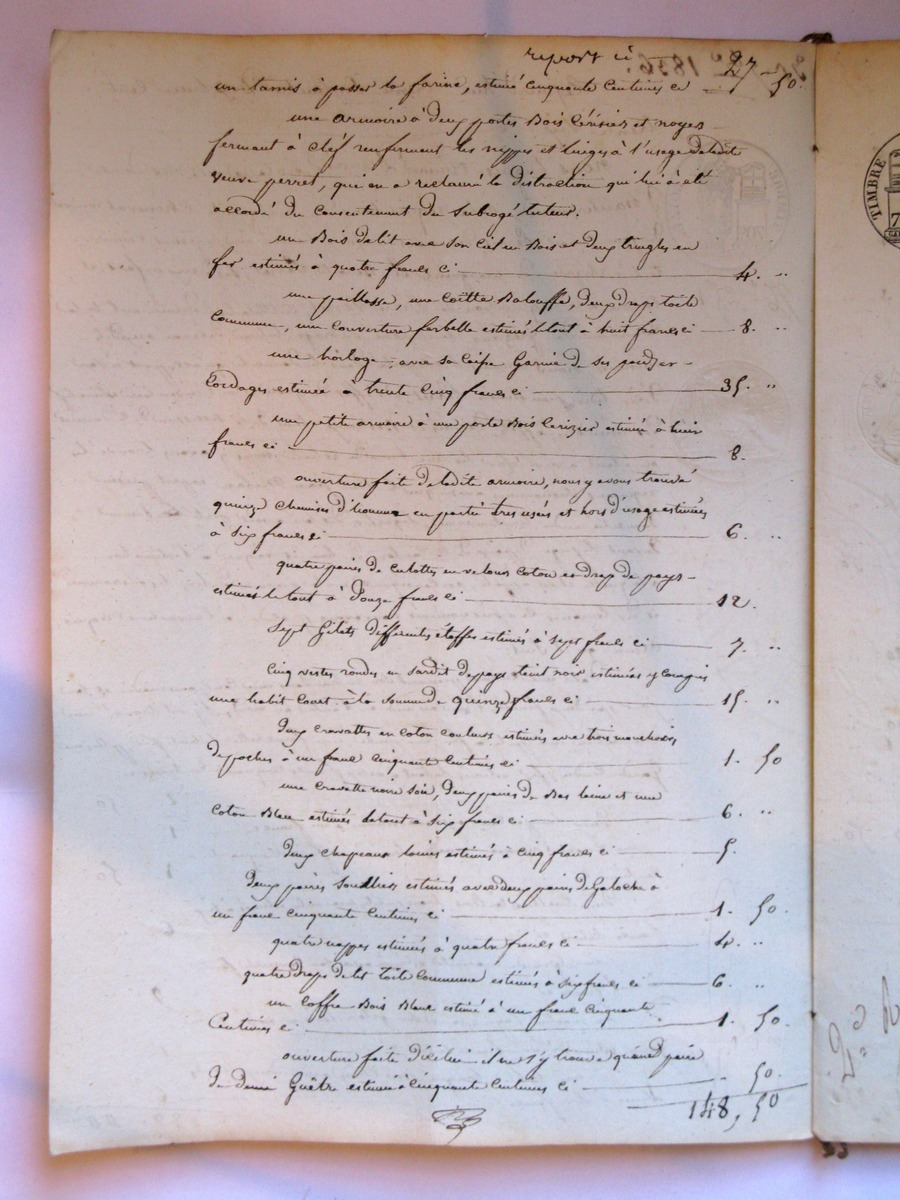 report ci 27 - 50.
un tamis à passer la farine, estimé cinquante centimes ci
une armoire à deux portes Bois Cérisier et noyer
fermant à cléf renfermant les nippes et linges à l'usage de ladite
veuve perret, qui en a reclamé la distraction qui lui a été
accordé du consentement du subrogé tuteur.
un Bois delit avec son ciel en Bois et deux tringles en
fer estimés à quatre francs ci 4. "
une paillasse, une Coëtte Balouffe, deux draps toile
commune, une couverture estimés le tout à huit francs ci 8. "
une horloge avec sa caisse Garnie de ses poids et
Cordages estimée à trente cinq francs ci 35. "
une petite armoire à une porte Bois Cerizier estimée à huit
francs ci 8.
ouverture fait de ladite armoire, nous y avons trouvé
quinze chemises d'homme en partie tres usées et hors d'usage estimées
à six francs ci 6. "
quatre paires de culottes en velours coton et drap de pays
estimés le tout à Douze francs ci 12.
Sept Gilets différentes étoffes estimés à sept francs ci 7. "
Cinq vestes rondes en de pays teint noir estimées y compris
une habit court à la somme de quinze francs ci 15. "
Deux cravattes en coton couleurs estimés avec trois mouchoirs
de poches à un franc cinquante centimes ci 1. 50
une cravatte noire soie, deux paires de Bas laine et une
coton Blanc estimés le tout à six francs ci 6. "
Deux chapeaux estimés à cinq francs ci 5.
Deux paires Soulliers estimés avec deux paires de Galoche à
un franc cinquante centimes ci 1. 50.
quatre nappes estimées à quatre francs ci 4. "
quatre draps de lit toile commune estimés à six francs ci 6. "
un coffre Bois Blanc estimé à un franc cinquante
Centimes ci 1. 50.
ouverture faite d'icelui il ne s'y trouve paire
de demi Guêtre estimée à cinquante centimes ci . 50.
148, 50
TIMBRE